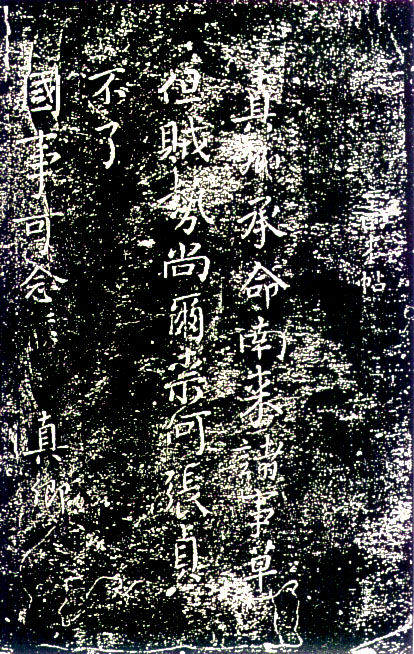 南來帖
真卿承命南来諸事草
但賊勢尚爾柰何張真
不了
國事可念 真卿